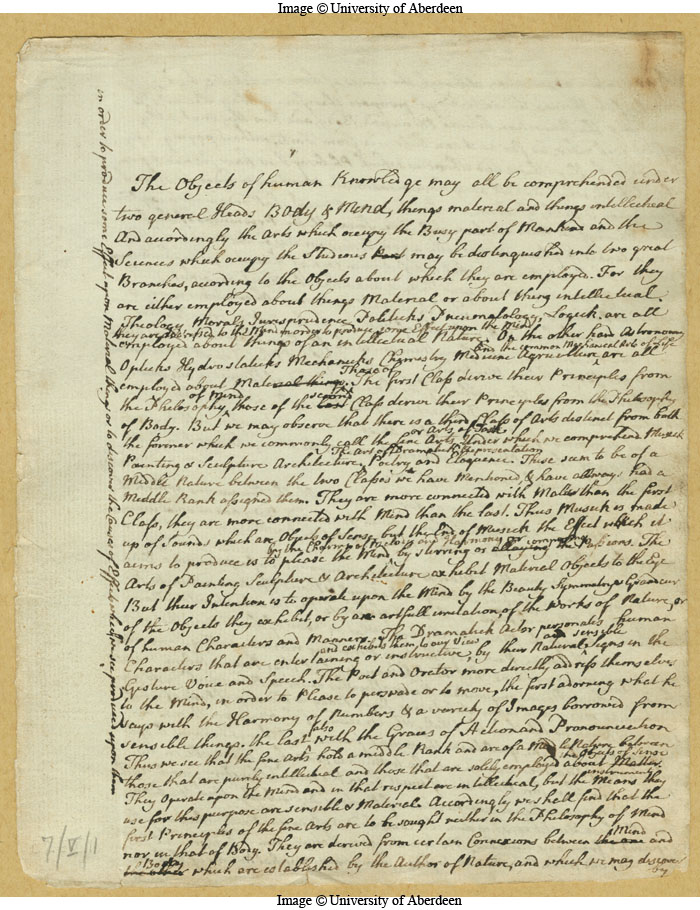 Image © University of Aberdeen
The Objects of human Knowledge may all be comprehended under
two general Heads Body & Mind, things material and things intellectual
And accordingly the Arts which occupy the Busy part of Mankind and the
Sciences which occupy the Studious may be distinguished into two great
Branches, according to the Objects about which they are employed. For they
are either employed about things Material or about thing intellectual.
Theology Morals Jurisprudence Politicks Pneumatology, Logick are all
they are directed to the Mind in order to produce some Effect upon the Mind
employed about things of an intellectual Nature. On the other hand Astronomy
And the common Mechanical Arts of Life
Opticks Hydrostaticks Mechanicks Chymistry Medicine Agriculture are all
Those of
employed about Material things. The first Class derive their Principles from
of Mind second
the Philosophy, those of the last Class derive their Principles from the Philosophy
of Body. But we may observe that there is a third Class of Arts distinct from both
or Arts of Taste
the former which we commonly call the fine Arts, Under which we comprehend Musick
The Art of Dramatick Representation
Painting & Sculpture Architecture, Poetry and Eloquence. These seem to be of a
Middle Nature between the two Classes we have Mentioned, & have allways had a
Middle Rank assigned them. They are more connected with Matter than the first
Class, they are more connected with Mind than the last. Thus Musick is made
up of Sounds which are Objects of Sense, but the End of Musick the Effect which it
by the Charms of Melody and Harmony or
aims to produce is to please the Mind by stirring or allaying the Passions. The
Arts of Painting Sculpture & Architecture exhibit Material Objects to the Eye
But their Intention is to operate upon the Mind by the Beauty Symmetry & Grandeur
of the Objects they exhibit, or by an artfull imitation, of the Works of Nature, or
of human Characters and Manners. The Dramatick Actor personates human
and exhibits them to our View and sensible
Characters that are entertaining or instructive, by their Natural Signs in the
Gesture Voice and Speech. The Poet and Orator more directly address themselves
to the Mind, in order to Please to perswade or to move, the first adorning what he
says with the Harmony of Numbers & a variety of Images borrowed from
also
sensible things. the last with the Graces of Action and Pronounciation
Thus we see that the fine Arts hold a middle Rank and are of a Middle Nature between
the Objects of Sense
those that are purely intellectual and those that are solely employed about Matter.
instruments
They Operate upon the Mind and in that respect are intellectual, but the Means they
use for this purpose are sensible & Material. Accordingly we shall find that the
first Principles of the fine Arts are to be sought neither in the Philosophy of Mind
Mind
nor in that of Body. They are derived from certain Connexions between the one and
Body
the other which are established by the Author of Nature, and which we may discover
by
in order to produce some Effect upon Material things or to discover the Causes of Effects produced upon them
7/V/1
Image © University of Aberdeen